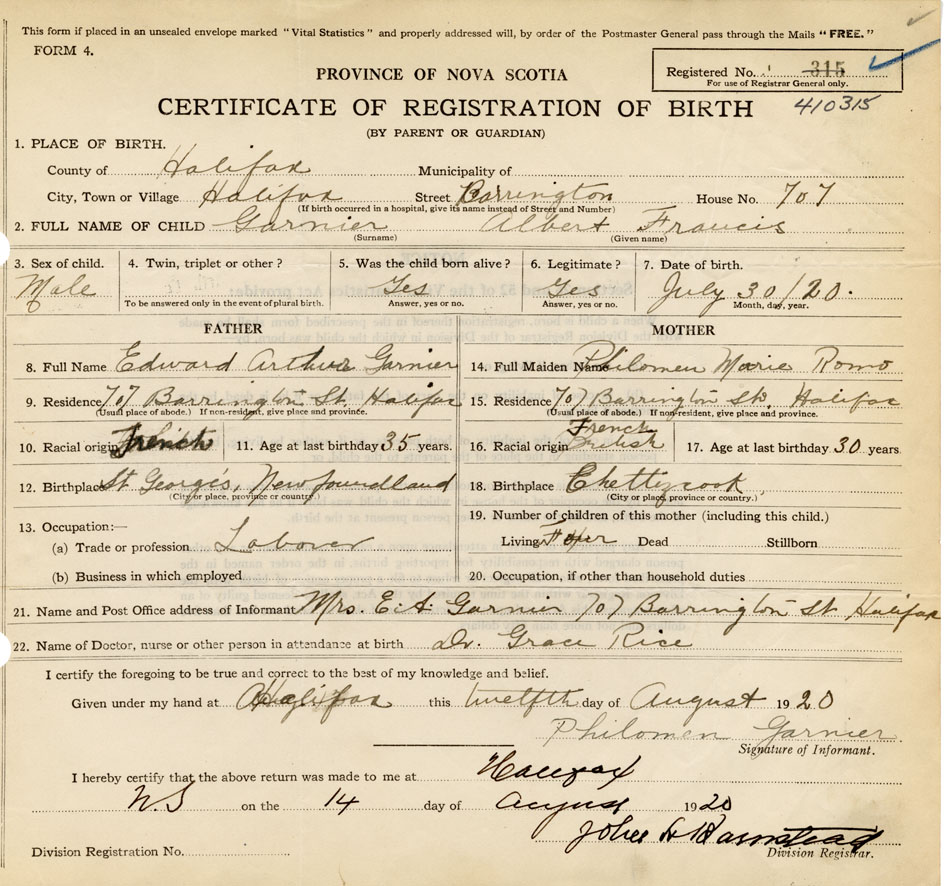 This form if placed in an unsealed envelope marked "Vital Statistics" and properly addressed will, by order of the Postmaster General pass through the Mails "FREE."
FORM 4.
Registered No. 315
For use of Registrar General only.
PROVINCE OF NOVA SCOTIA
CERTIFICATE OF REGISTRATION OF BIRTH 410315
(BY PARENT OR GUARDIAN)
1. PLACE OF BIRTH.
County of Halifax Municipality of
City, Town or Village Halifax Street Barrington House No. 707
(If birth occurred in a hospital, give its name instead of Street and Number)
2. FULL NAME OF CHILD Garnier Albert Francis
(Surname) (Given name)
3. Sex of child. 4. Twin, triplet or other? 5. Was the child born alive? 6. Legitimate? 7. Date of birth.
Male Yes Yes July 30/20.
To be answered only in the event of plural birth. Answer, yes or no. Answer, yes or no. Month, day, year.
FATHER MOTHER
8. Full Name Edward Arthur Garnier 14. Full Maiden Name Philomen Marie Romo
9. Residence 707 Barrington St. Halifax 15. Residence 707 Barrington St. Halifax
(Usual place of abode.) If non-resident, give place and province. (Usual place of abode.) If non-resident, give place and province.
10. Racial origin French 11. Age at last birthday 35 years. 16. Racial origin French British 17. Age at last birthday 30 years.
12. Birthplace St George's, Newfoundland 18. Birthplace Chettzcook
(City or place, province or country.) (City or place, province or country.)
19. Number of children of this mother (including this child.)
13. Occupation:—
(a) Trade or profession Laborer Living Dead Stillborn
(b) Business in which employed 20. Occupation, if other than household duties
21. Name and Post Office address of Informant Mrs. E. A. Garnier 707 Barrington St Halifax
22. Name of Doctor, nurse or other person in attendance at birth Dr. Grace Rice
I certify the foregoing to be true and correct to the best of my knowledge and belief.
Given under my hand at Halifax this twelfth day of August 1920
Philomen Garnier
Signature of Informant.
I hereby certify that the above return was made to me at Halifax
N.S on the 14 day of August 1920
John
Division Registration No. Division Registrar.